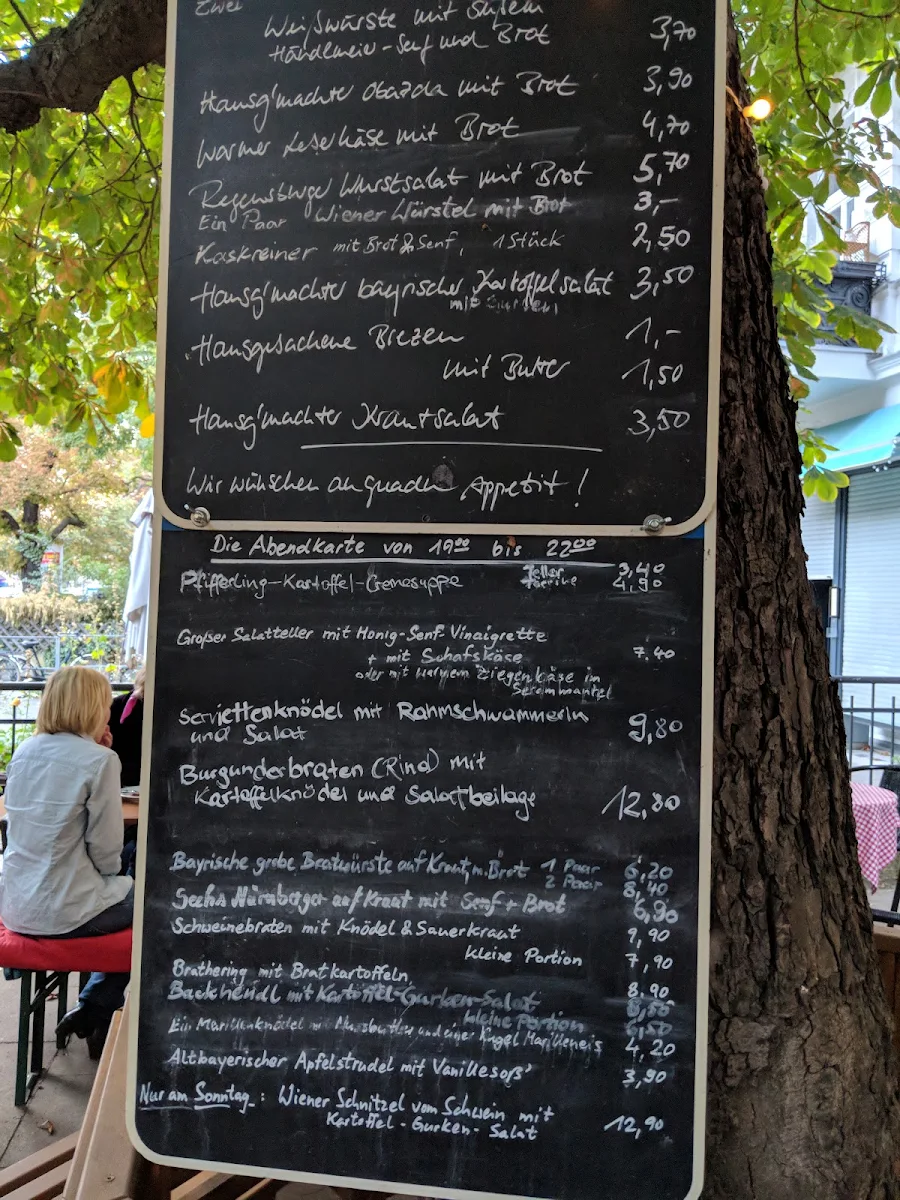 Zwei
Weißwürste mit süßem
Händlmeir-Senf und Brot 3,70
Hausg'machter Obazda mit Brot 3,90
Warmer Leberkäse mit Brot 4,70
Regensburger Wurstsalat mit Brot 5,70
Ein Paar Wiener Würstel mit Brot 3,-
Kaskreiner mit Brot & Senf, 1 Stück 2,50
Hausg'machter bayrischer Kartoffelsalat 3,50
mit Gurken
Hausgebackene Brezen 1,-
mit Butter 1,50
Hausg'machter Krautsalat 3,50
Wir wünschen an guadn Appetit!
Die Abendkarte von 19⁰⁰ bis 22⁰⁰
Pfifferling-Kartoffel-Cremesuppe Teller 3,40
Terrine 4,90
Großer Salatteller mit Honig-Senf-Vinaigrette
+ mit Schafskäse 7,40
oder mit warmem Ziegenkäse im
Serannmantel
Serviettenknödel mit Rahmschwammerln
und Salat 9,80
Burgunderbraten (Rind) mit
Kartoffelknödel und Salatbeilage 12,80
Bayrische grobe Bratwürste auf Kraut m. Brot 1 Paar 6,20
2 Paar 8,40
Sechs Nürnberger auf Kraut mit Senf + Brot 6,90
Schweinebraten mit Knödel & Sauerkraut 9,90
kleine Portion 7,90
Brathering mit Bratkartoffeln 8,90
Backhendl mit Kartoffel-Gurken-Salat 8,50
kleine Portion 6,50
Ein Marillenknödel mit Nussbutter und einer Kugel Marilleneis 4,20
Altbayerischer Apfelstrudel mit Vanillesoß' 3,90
Nur am Sonntag: Wiener Schnitzel vom Schwein mit
Kartoffel-Gurken-Salat 12,90